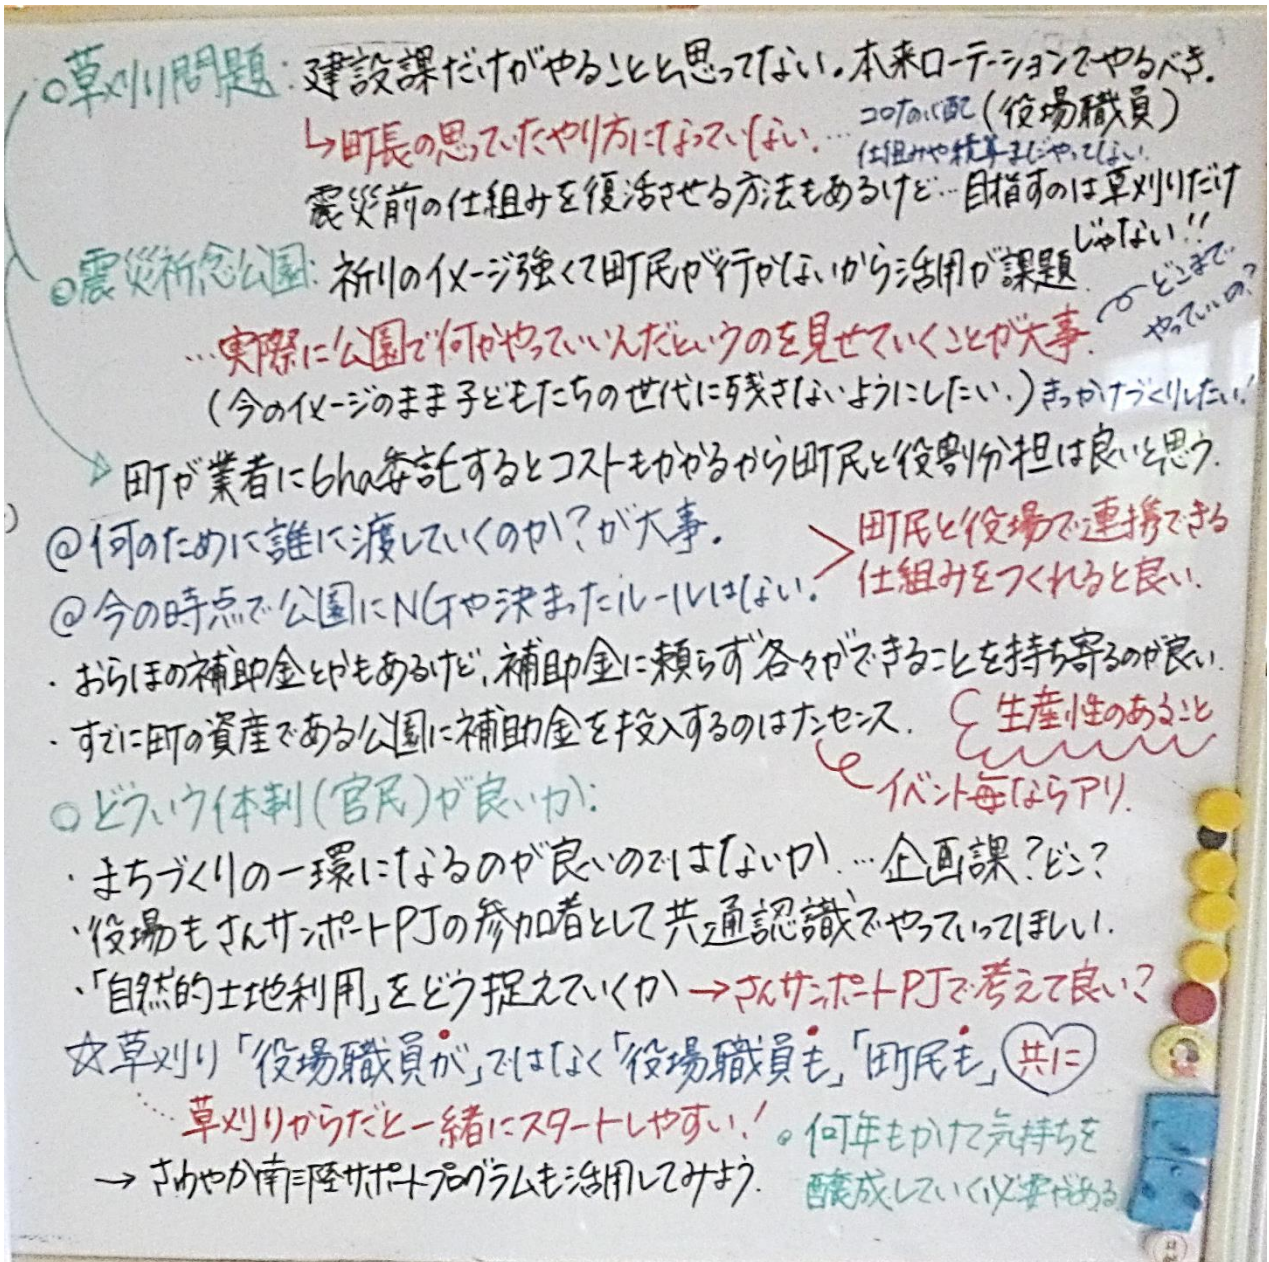 ○草刈り問題：建設課だけがやることと思ってない。本来ローテーションでやるべき。
(役場職員)
↳町長の思っていたやり方になっていない…
コロナの心配
仕組みや積算までやってしまい
震災前の仕組みを復活させる方法もあるけど…目指すのは草刈りだけ
じゃない!!
◎震災祈念公園：祈りのイメージ強くて町民が行かないから活用が課題.
どこまで
やっていいの?
…実際に公園で何かやっていいんだというのを見せていくことが大事.
(今のイメージのまま子どもたちの世代に残さないようにしたい.)きっかけづくりしたい!
町が業者に6ha委託するとコストもかかるから町民と役割分担は良いと思う.
@何のために誰に渡していくのか?が大事。
@今の時点で公園にNGや決まったルールはない.
町民と役場で連携できる
仕組みをつくれると良い.
・おらほの補助金とかもあるけど,補助金に頼らず各々ができることを持ち寄るのが良い.
・すでに町の資産である公園に補助金を投入するのはナンセンス.
生産性のあること
イベント毎ならアリ.
○どういう体制(官民)が良いか:
・まちづくりの一環になるのが良いのではないか…企画課?どこ?
・役場もさんサンポートPJの参加者として共通認識でやっていってほしい.
・「自然的土地利用」をどう捉えていくか→さんサンポートPJで考えて良い?
☆草刈り「役場職員が」ではなく「役場職員も」「町民も」共に
……草刈りからだと一緒にスタートしやすい!
→さわやか南三陸サポートプログラムも活用してみよう.
。何年もかけて気持ちを
醸成していく必要がある